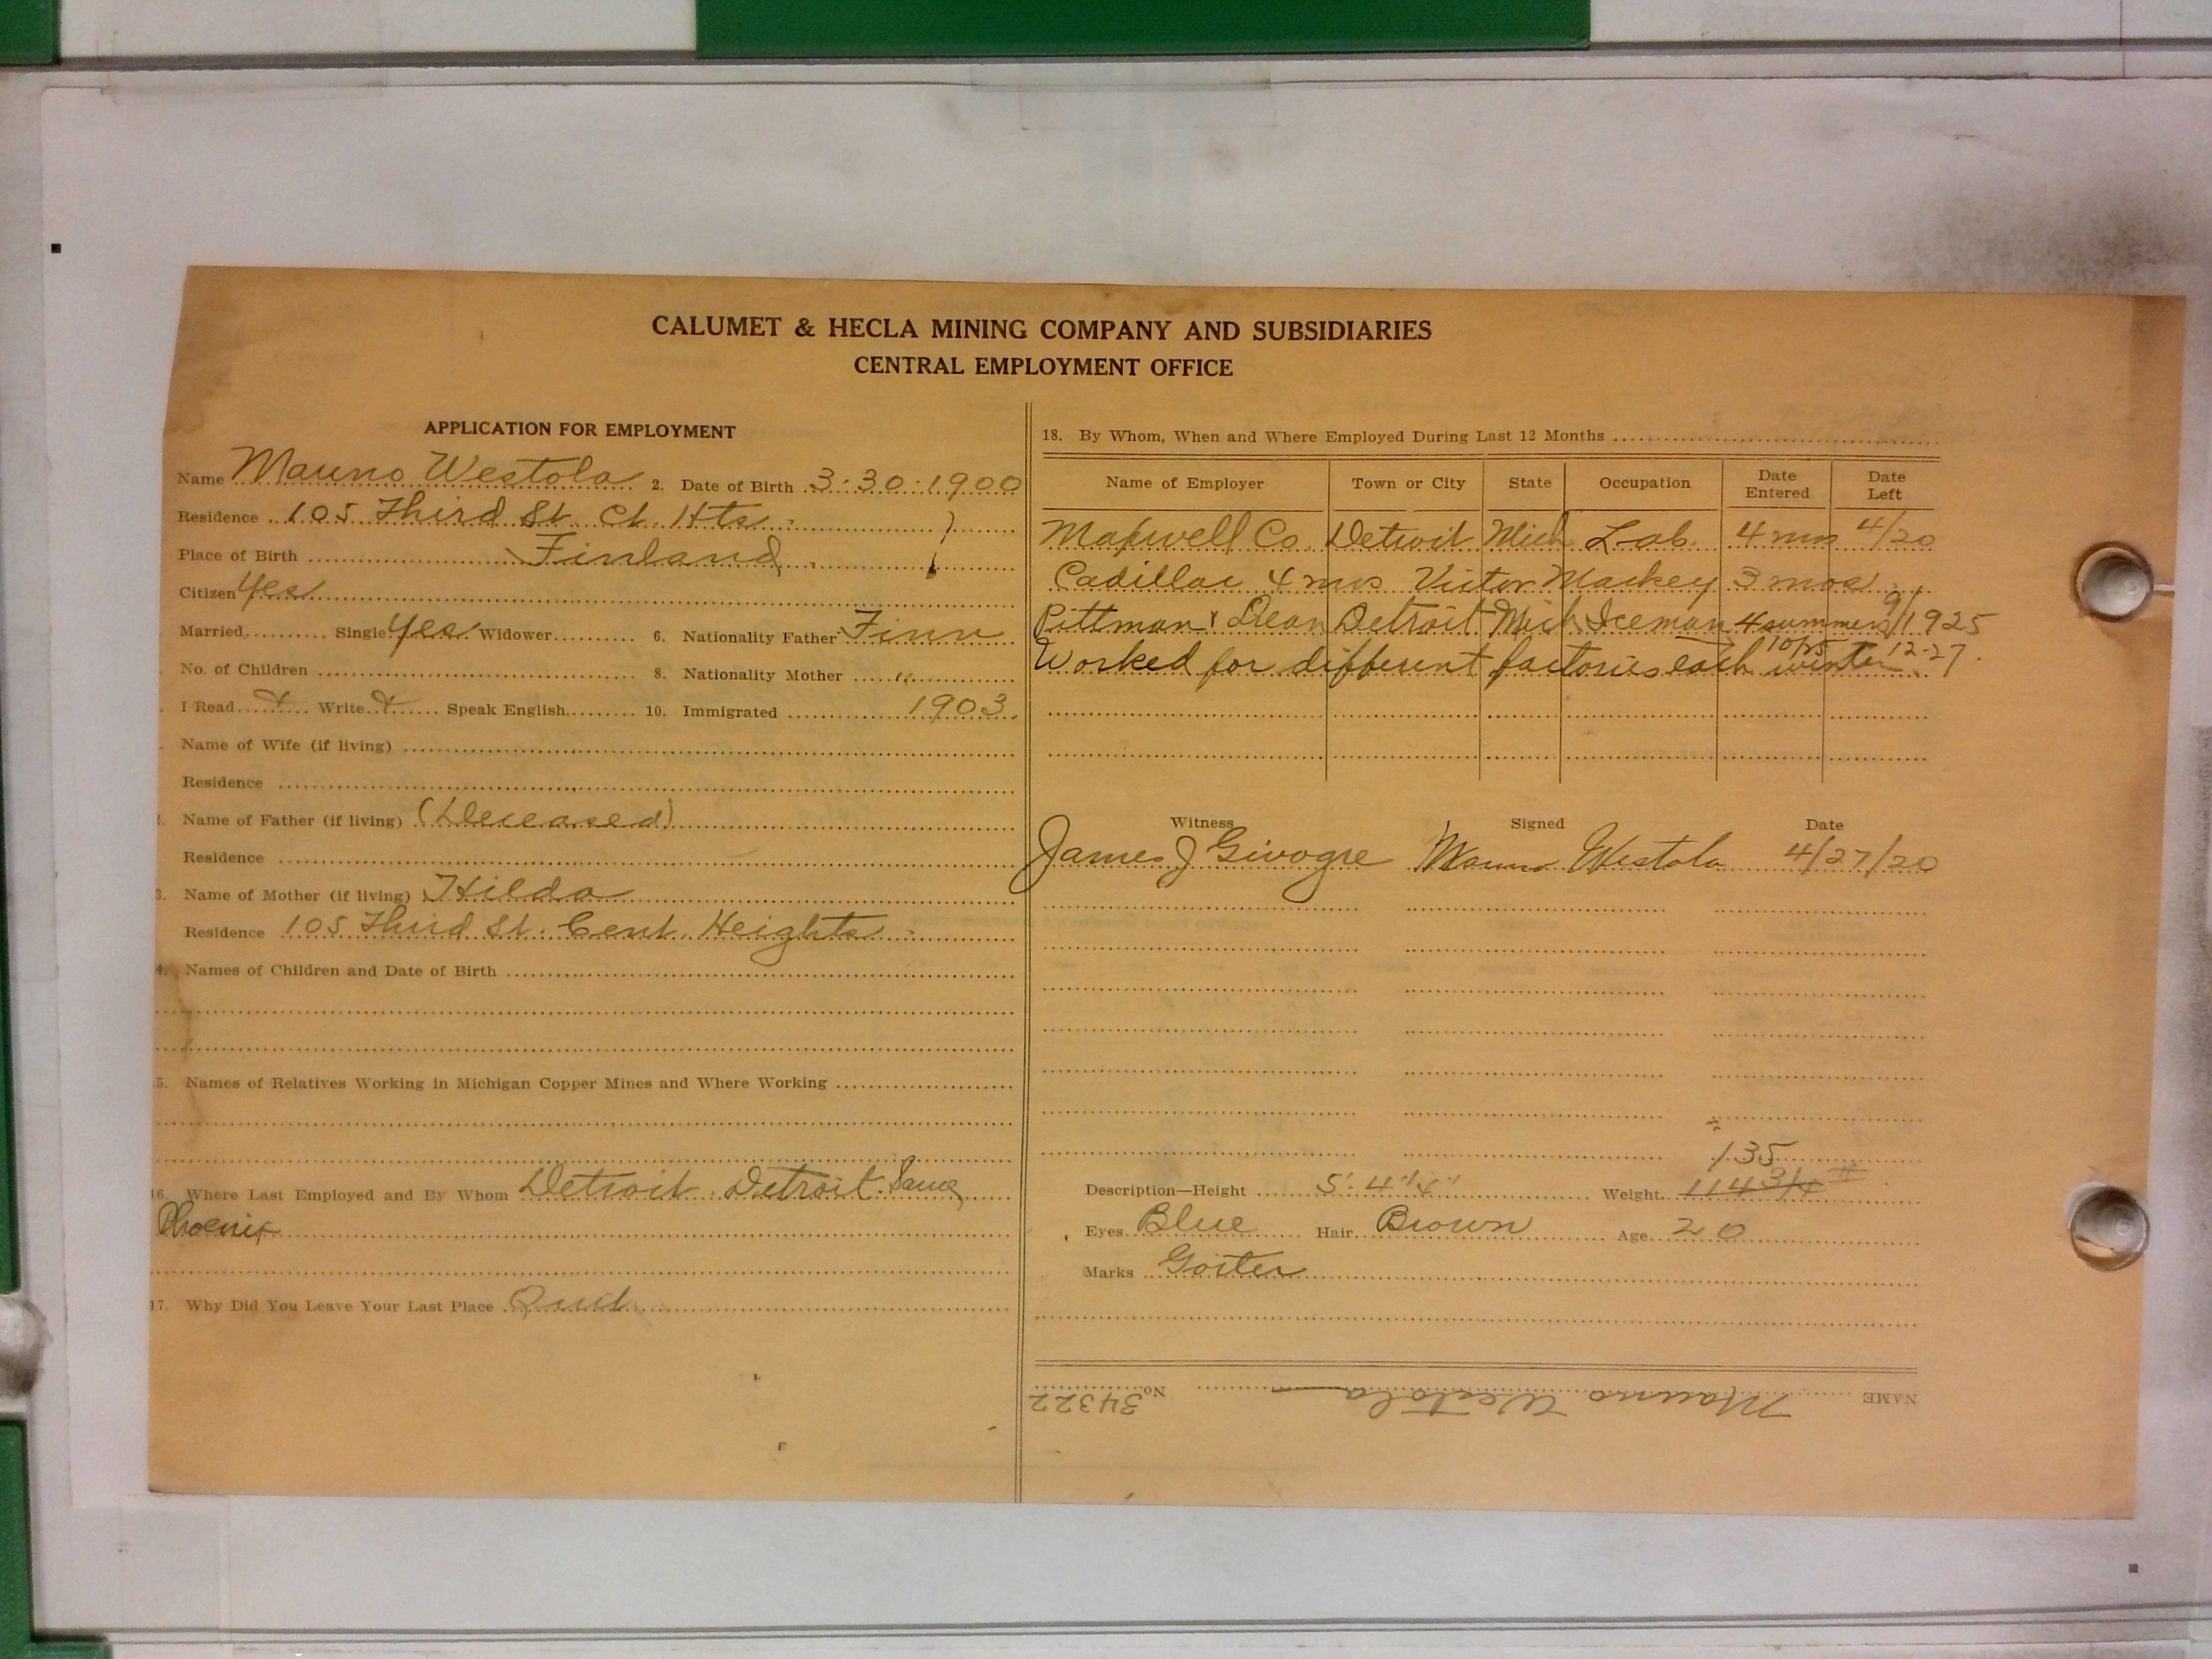 CALUMET & HECLA MINING COMPANY AND SUBSIDIARIES
CENTRAL EMPLOYMENT OFFICE
APPLICATION FOR EMPLOYMENT
Name Mauno Westola 2. Date of Birth 3:30:1900
Residence 105 Third St Ct. Hts
Place of Birth Finland
Citizen Yes
Married Single Yes Widower 6. Nationality Father Finn
No. of Children 8. Nationality Mother "
I Read Write Speak English 10. Immigrated 1903
Name of Wife (if living)
Residence
Name of Father (if living) (Deceased)
Residence
3. Name of Mother (if living) Hilda
Residence 105 Third St. Cent. Heights
4. Names of Children and Date of Birth
5. Names of Relatives Working in Michigan Copper Mines and Where Working
16. Where Last Employed and By Whom Detroit Detroit
Phoenix
17. Why Did You Leave Your Last Place Quit
18. By Whom, When and Where Employed During Last 12 Months
Name of Employer Town or City State Occupation Date Entered Date Left
Maxwell Co Detroit Mich Lab. 4 mos 4/20
Cadillac 4 mos Victor Mackey 3 mos
Pittman & Dean Detroit Mich Iceman 4 summers 9/1925
Worked for different factories each winter 10/25 12-27
Witness Signed Date
James J Givogre Mauno Westola 4/27/20
135
Description—Height 5' 4 Weight 114 3/4 #
Eyes Blue Hair Brown Age 20
Marks Goiter
NAME Mauno Westola No 34322